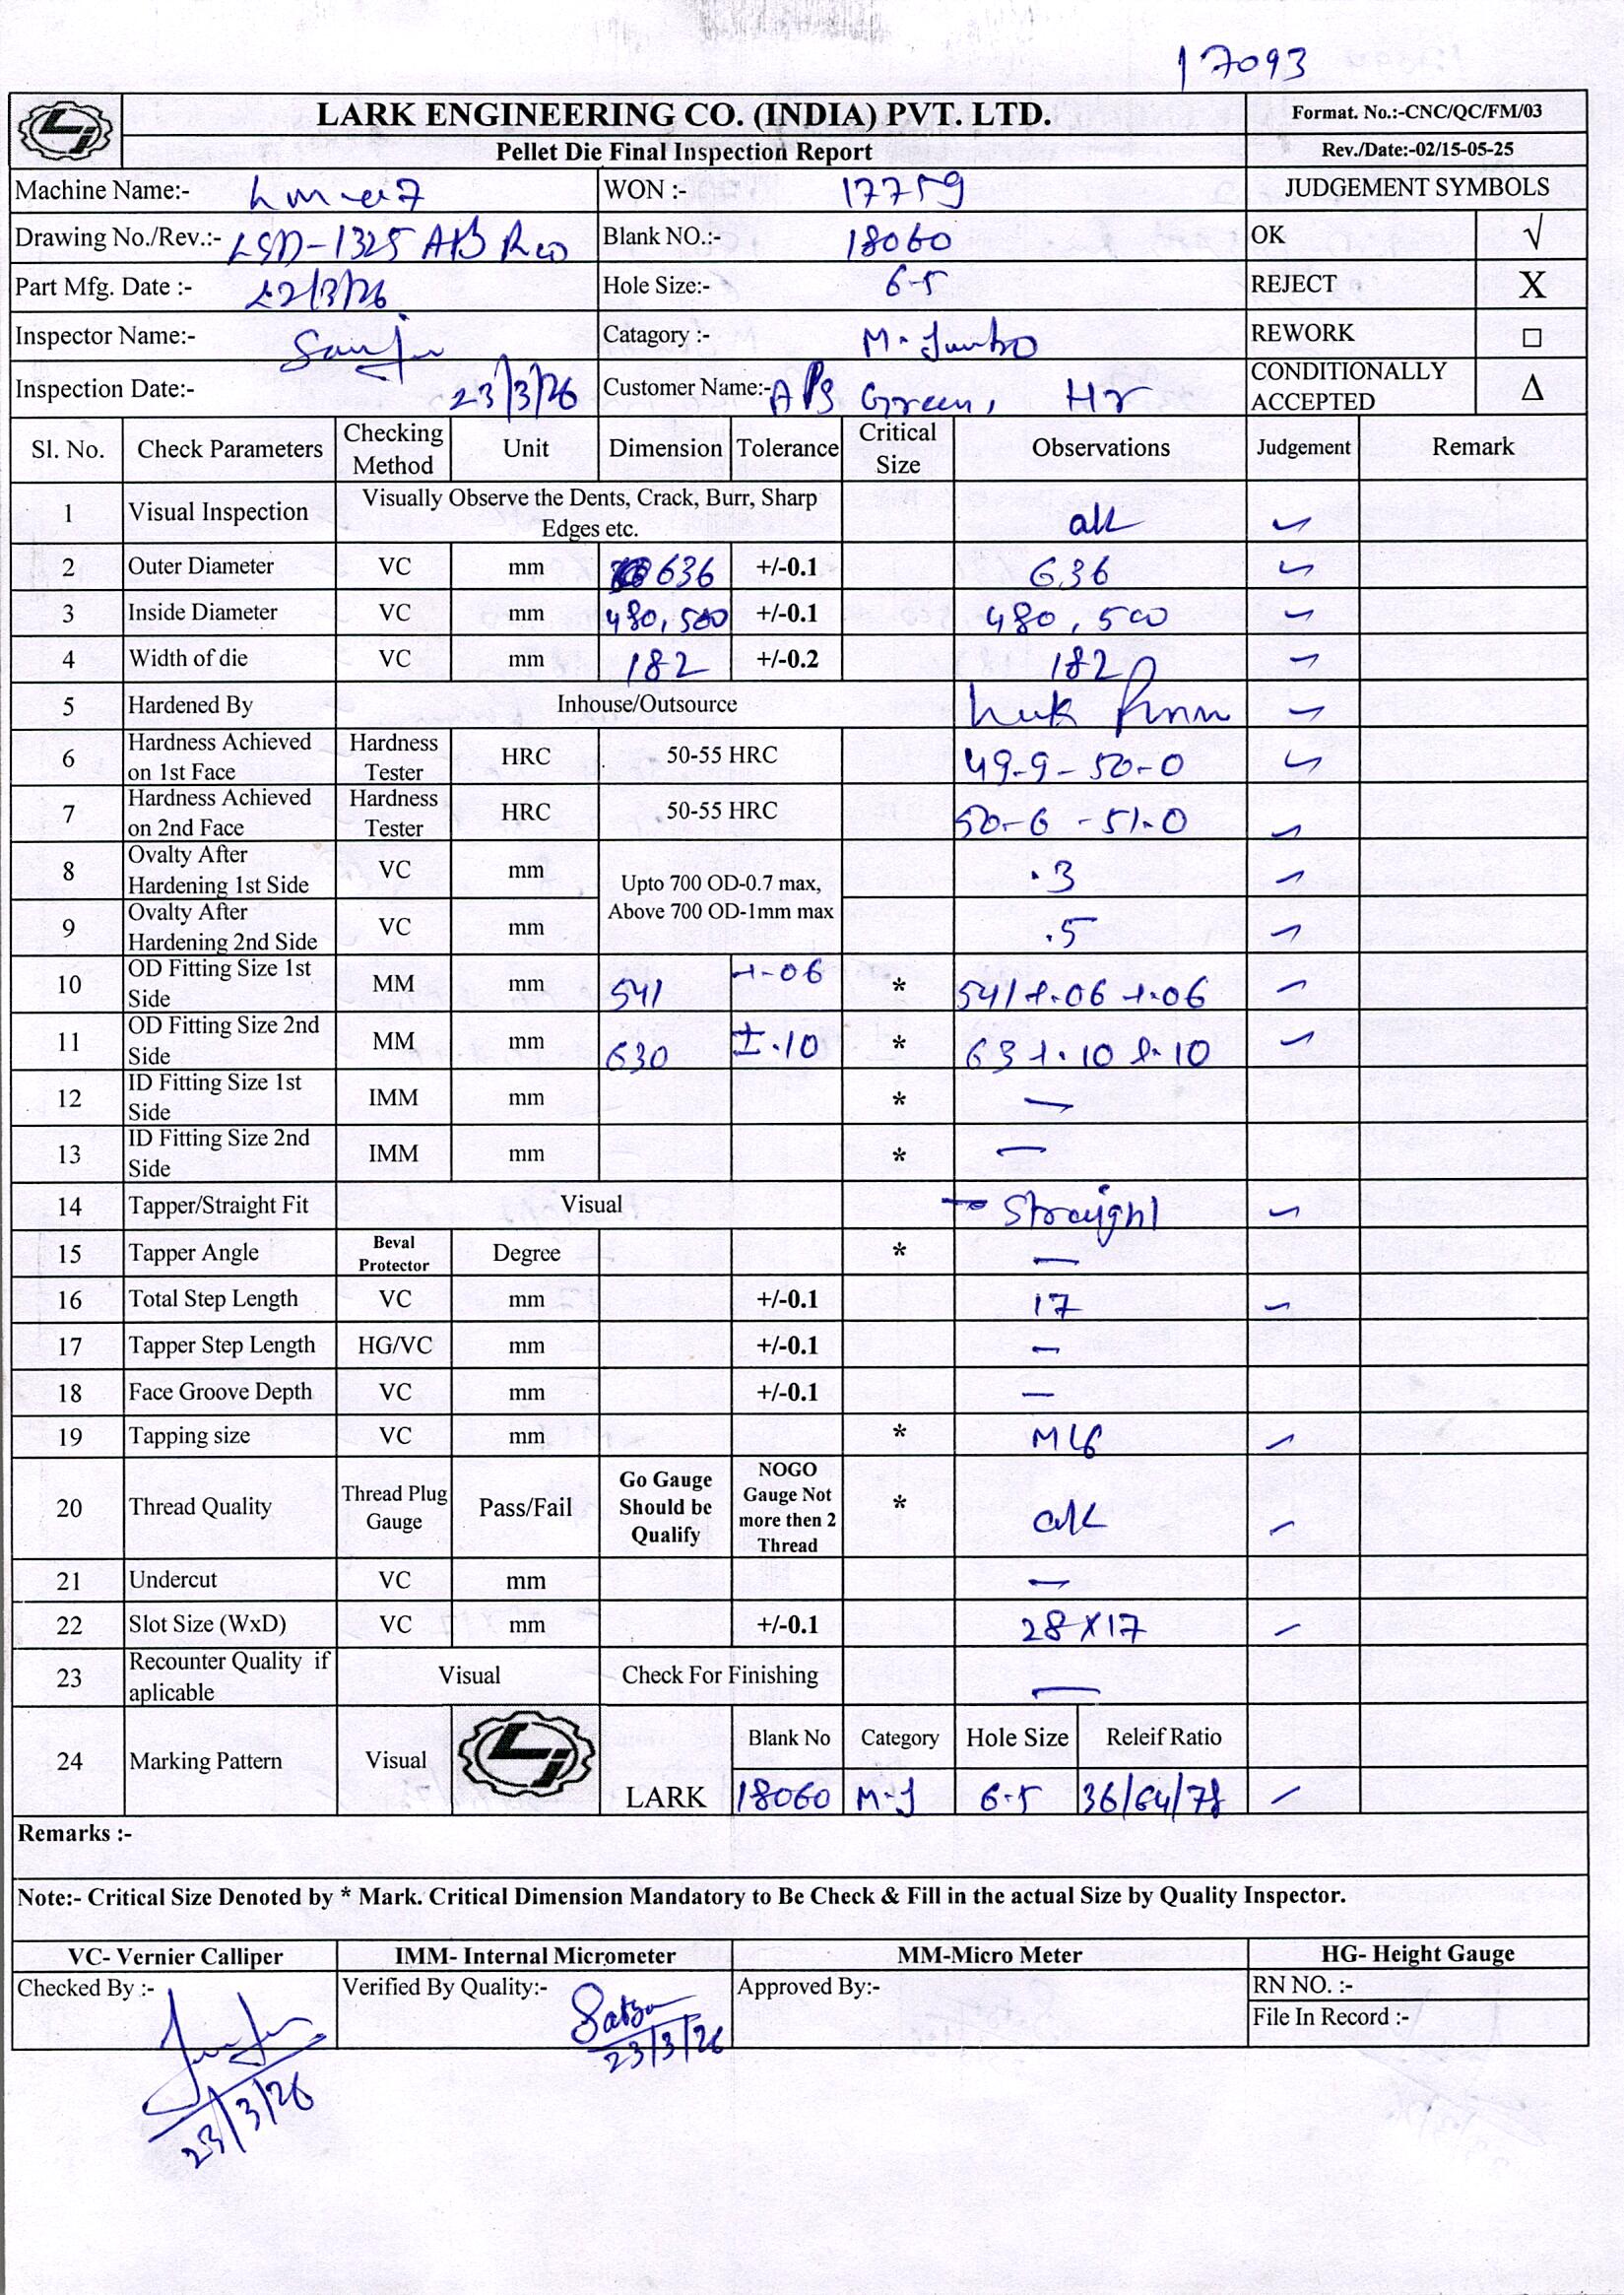 17093
LARK ENGINEERING CO. (INDIA) PVT. LTD. Format. No.:-CNC/QC/FM/03
Pellet Die Final Inspection Report Rev./Date:-02/15-05-25
Machine Name:- WON :- 17759 JUDGEMENT SYMBOLS
Drawing No./Rev.:- LSD-1325 APB R00 Blank NO.:- 18060 OK √
Part Mfg. Date :- 22/3/26 Hole Size:- 6.5 REJECT X
Inspector Name:- Sanju Catagory :- M. Jumbo REWORK □
Inspection Date:- 23/3/26 Customer Name:- APS Green, Hr CONDITIONALLY ACCEPTED Δ
Sl. No. Check Parameters Checking Method Unit Dimension Tolerance Critical Size Observations Judgement Remark
1 Visual Inspection Visually Observe the Dents, Crack, Burr, Sharp Edges etc. ok ✓
2 Outer Diameter VC mm 636 +/-0.1 636 ✓
3 Inside Diameter VC mm 480, 500 +/-0.1 480, 500 ✓
4 Width of die VC mm 182 +/-0.2 182 ✓
5 Hardened By Inhouse/Outsource ✓
6 Hardness Achieved on 1st Face Hardness Tester HRC 50-55 HRC 49.9 - 50.0 ✓
7 Hardness Achieved on 2nd Face Hardness Tester HRC 50-55 HRC 50.6 - 51.0 ✓
8 Ovalty After Hardening 1st Side VC mm Upto 700 OD-0.7 max, Above 700 OD-1mm max .3 ✓
9 Ovalty After Hardening 2nd Side VC mm .5 ✓
10 OD Fitting Size 1st Side MM mm 541 +.06 * 541+.06 +.06 ✓
11 OD Fitting Size 2nd Side MM mm 630 ±.10 * ✓
12 ID Fitting Size 1st Side IMM mm * —
13 ID Fitting Size 2nd Side IMM mm * —
14 Tapper/Straight Fit Visual Straight ✓
15 Tapper Angle Beval Protector Degree * —
16 Total Step Length VC mm +/-0.1 17 ✓
17 Tapper Step Length HG/VC mm +/-0.1 —
18 Face Groove Depth VC mm +/-0.1 —
19 Tapping size VC mm * M16 ✓
20 Thread Quality Thread Plug Gauge Pass/Fail Go Gauge Should be Qualify NOGO Gauge Not more then 2 Thread * ok ✓
21 Undercut VC mm —
22 Slot Size (WxD) VC mm +/-0.1 28X17 ✓
23 Recounter Quality if aplicable Visual Check For Finishing —
24 Marking Pattern Visual LARK Blank No Category Hole Size Releif Ratio
18060 M-J 6.5 36/64/78 ✓
Remarks :-
Note:- Critical Size Denoted by * Mark. Critical Dimension Mandatory to Be Check & Fill in the actual Size by Quality Inspector.
VC- Vernier Calliper IMM- Internal Micrometer MM-Micro Meter HG- Height Gauge
Checked By :- Verified By Quality:- Approved By:- RN NO. :-
File In Record :-
23/3/26
23/3/26